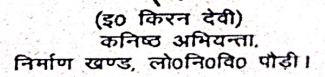 (इ० किरन देवी)
कनिष्ठ अभियन्ता,
निर्माण खण्ड, लो०नि०वि० पौड़ी।